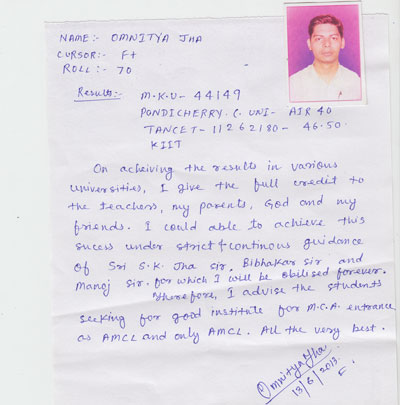 NAME:- OMNITYA JHA
CURSOR:- F+
ROLL:- 70
Results:- M.K.U- 44149
PONDICHERRY.C. UNI- AIR 40
TANCET- 11262180- 46.50.
KIIT
On acheiving the results in various
universities, I give the full credit to
the teachers, my parents, God and my
friends. I could able to achieve this
sucess under strict & continous guidance
of Sri S.K. Jha sir, Bibhakar sir and
Manoj sir. for which I will be obilised forever.
Therefore, I advise the students
seeking for good institute for M.C.A. entrance
as AMCL and only AMCL. All the very best.
Omnitya Jha
13/6/2013.
F.